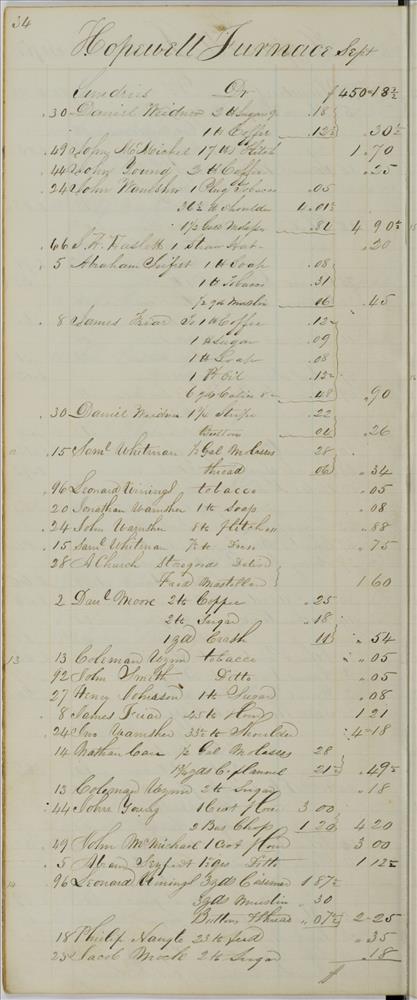 34
Hopewell Furnace Sept
Sundries Dr $ 450-18½
30 Daniel Weidner 2 lb Sugar .18
1 lb Coffee .12½ .30½
49 John McMichel 17 lb 1.70
44 John Young 2 lb Coffee .25
24 John Wamsher 1 Plug Tobacco .05
lb Shoulder 4.01½
1½ Gall Molasses .84 4 90½
66 1 Straw Hat .20
5 Abraham Seifert 1 lb Soap .08
1 lb Tobacco .31
½ yd Muslin 06 .45
8 James Friar To 1 lb Coffee .12
1 lb Sugar .09
1 lb Soap .08
1 Pt Oil .12
6 yds Calico .48 .90
30 Daniel Weidner Stripe .22
Buttons 04 .26
.15 Saml Whitman ½ Gal Molasses 28
thread 06 .34
96 Leonard tobacco .05
20 Jonathan Wamsher 1 lb Soap .08
24 John Wamsher 8 lb flitches .88
.15 Saml Whitman .75
28 A Church
1 60
2 Danl Moore 2 lb Coffee .25
2 lb Sugar .18
1 yd Crash 11 .54
13 13 Coleman Wynn tobacco .05
92 John Smith Ditto .05
27 Henry Johnson 1 lb Sugar .08
8 James Friar 45 lb flour 1 21
24 Jno Wamsher 33 lb Shoulder 4-18
14 Nathan Care ½ Gal Molasses 28
yds C. flannel 21½ .49½
13 Coleman Wynn 2 lb Sugar .18
44 John Young 1 Cwt flour 3 00
2 Bus Chop 1 20 4 20
49 John McMichael 1 Cwt flour 3 00
5 Abam Seyfert Ditto 1 12½
14 96 Leonard 3 yds 1 87½
3 yds Muslin .30
Button &thread .07½ 2-25
18 Philip Nangle 23 lb feed .35
23 Jacob Mock 2 lb Sugar .18
$